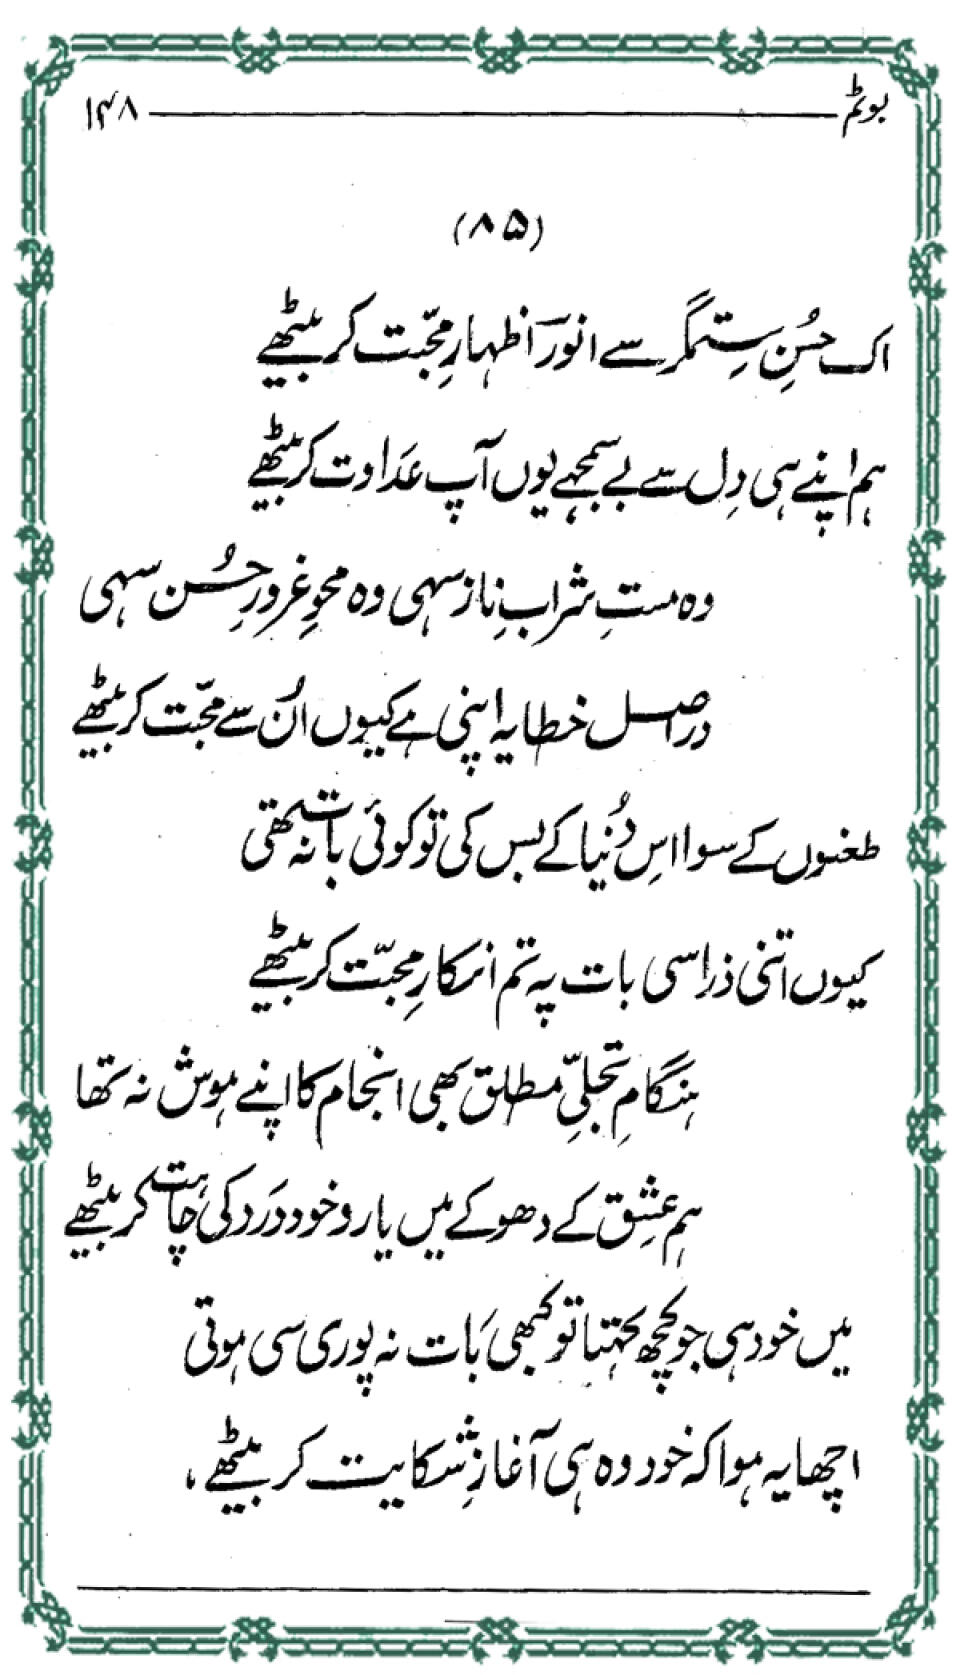 بوٹم ۱۴۸
(۸۵)
اک حسُنِ ستِمگر سے انورؔ اظہارِ محبّت کر بیٹھے
ہم اپنے ہی دِل سے بے سمجھے یوں آپ عَداوت کر بیٹھے
وہ مستِ شرابِ ناز سہی وہ محوِ غرورِ حسُن سہی
دراصل خطا یہ اپنی ہے کیوں اُن سے محبّت کر بیٹھے
طعنوں کے سوا اسِ دُنیا کے بس کی تو کوئی بات نہ تھی
کیوں اتنی ذرا سی بات پہ تم انکارِ محبّت کر بیٹھے
ہنگامِ تجلیِّ مطلق بھی انجام کا اپنے ہوش نہ تھا
ہم عشِق کے دھوکے میں یارو خود دَرد کی چاہت کر بیٹھے
میں خود ہی جو کچھ کہتا تو کبھی بَات نہ پوری سی ہوتی
اچھا یہ ہوا کہ خود وہ ہی آغازِ شکایت کر بیٹھے ،